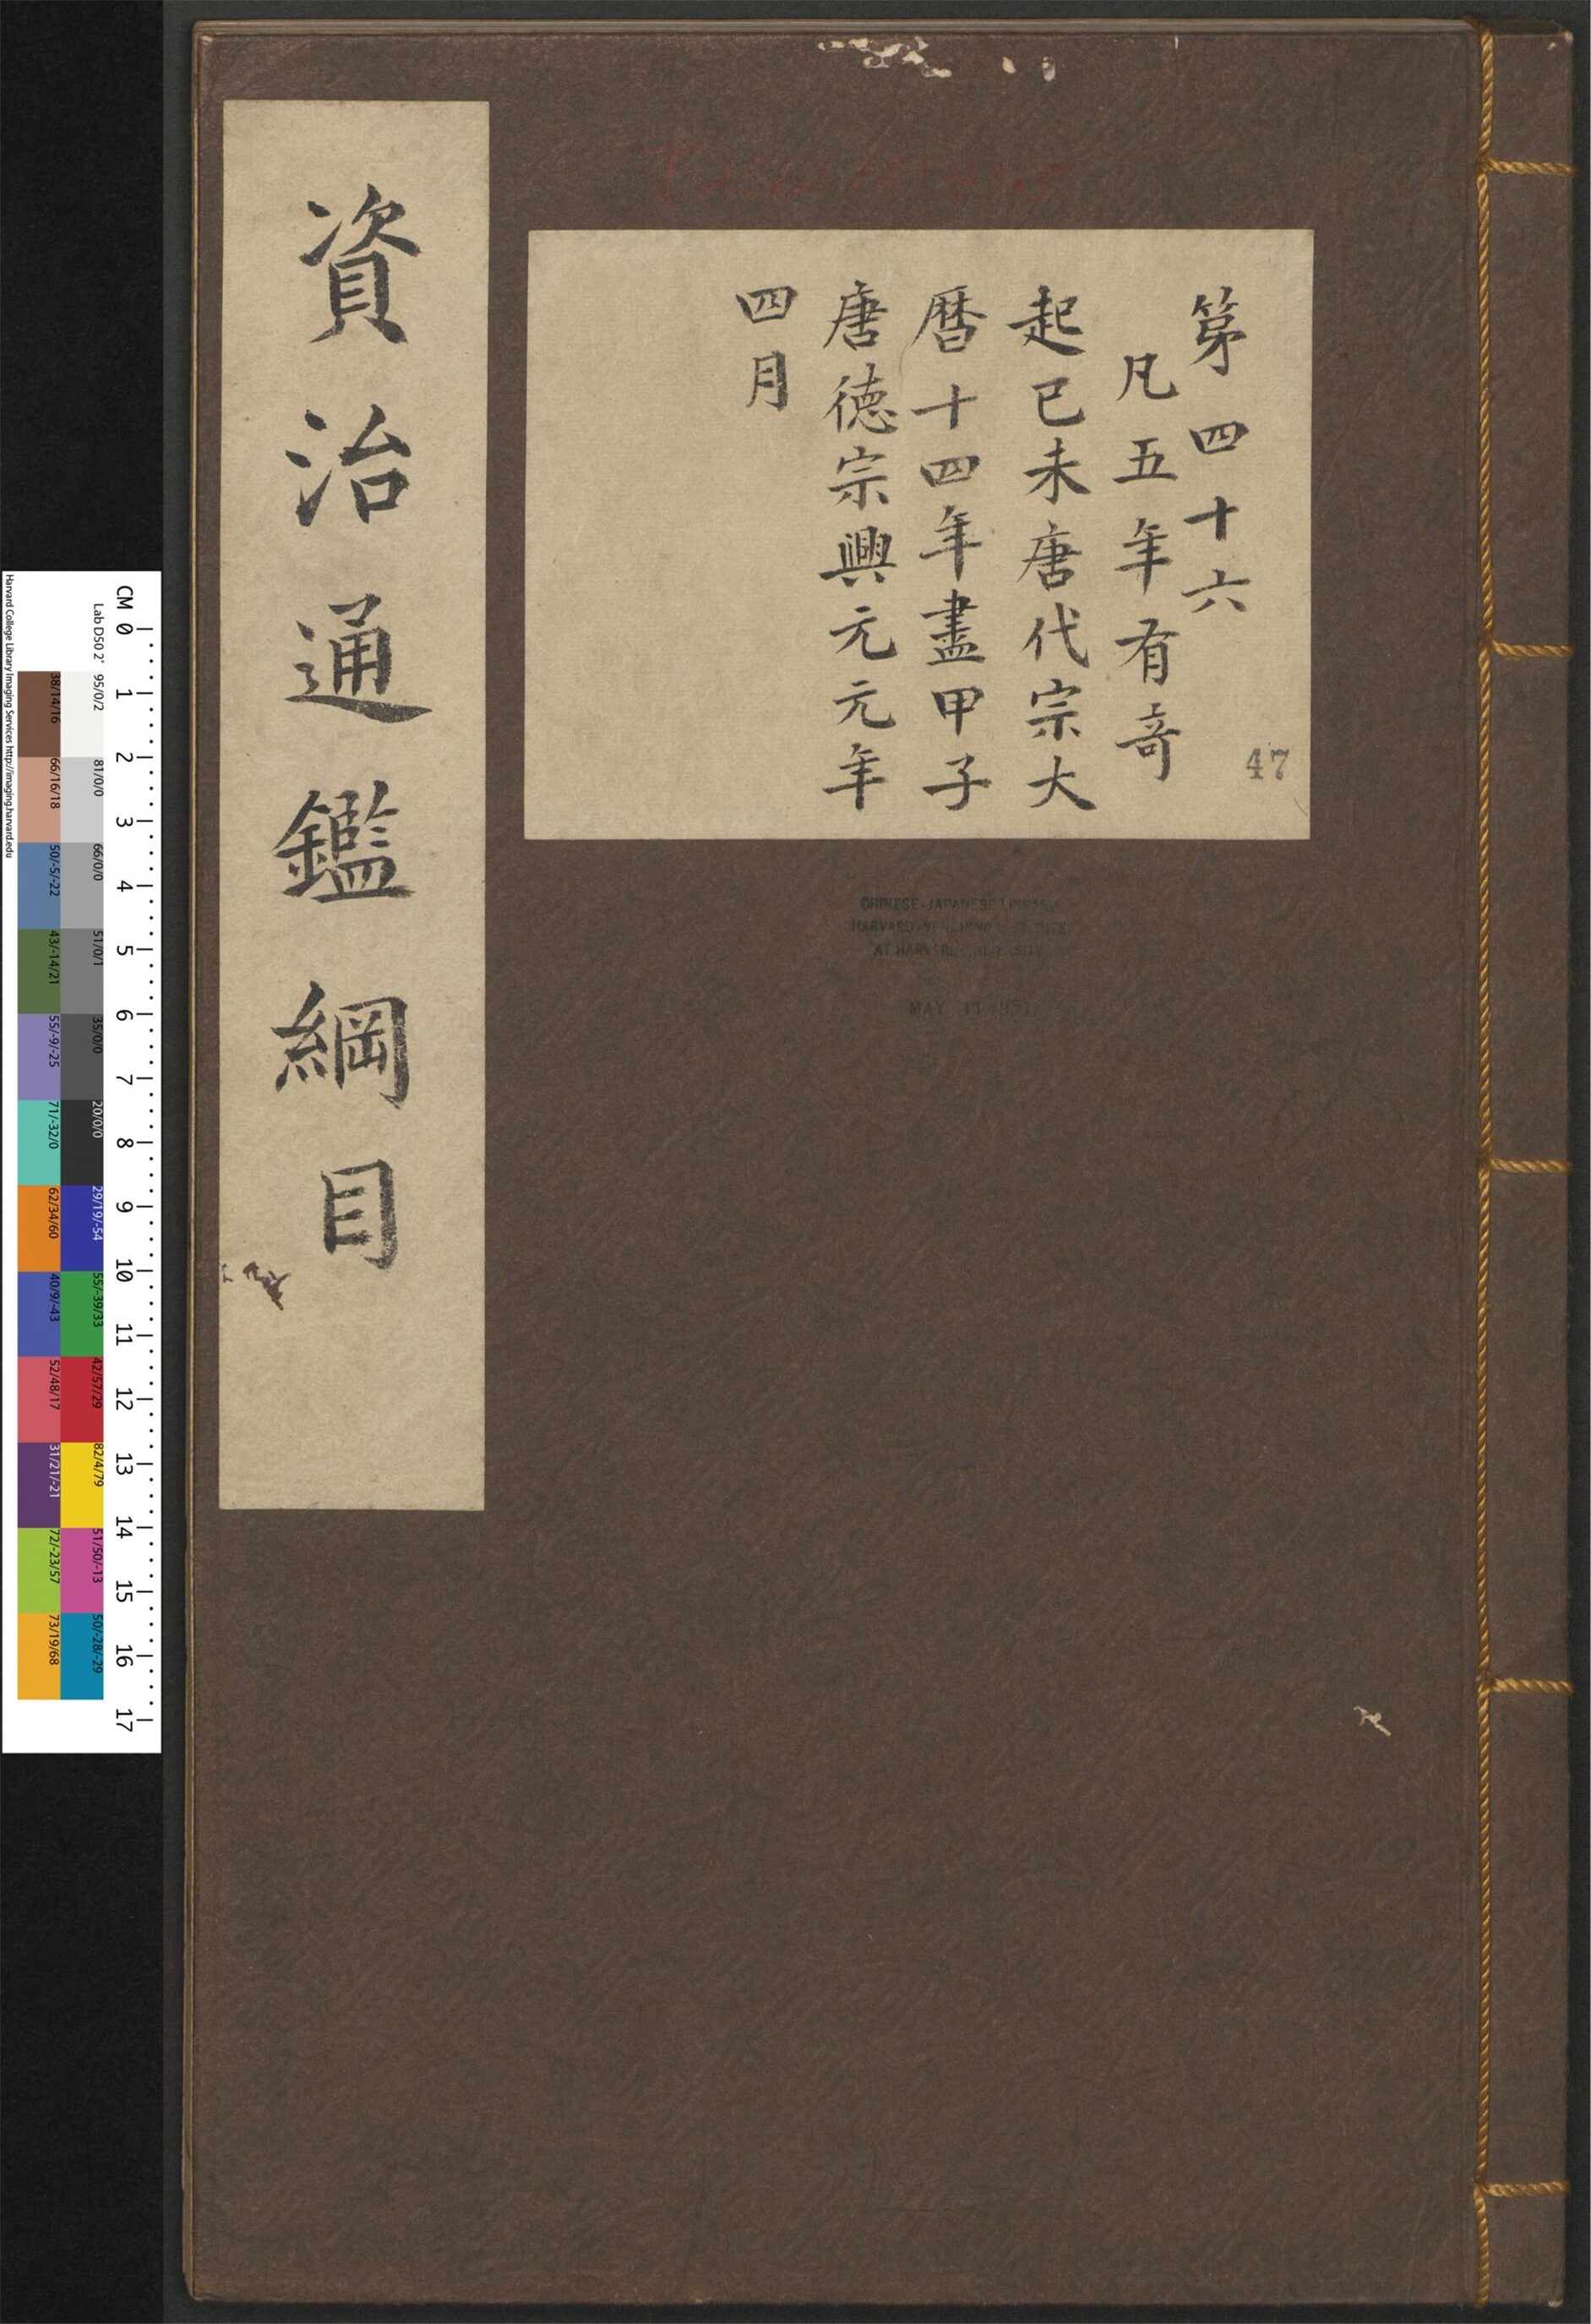 資治通鑑綱目
第四十六
凡五年有奇
起已未唐代宗大
暦十四年盡甲子
唐徳宗興元元年
四月
47
CHINESE-JAPANESE
HARVARD-YENCHING
AT HARVARD UNIVERSITY
MAY
Harvard College Library Imaging Services http://imaging.harvard.edu
Lab D50 2°
95/0/2
81/0/0
66/0/0
51/0/1
35/0/0
20/0/0
29/19/-54
55/-39/33
42/57/29
82/4/79
51/50/-13
50/-28/-29
38/14/16
66/16/18
50/-5/-22
43/-14/21
55/-9/-25
71/-32/0
62/34/60
40/9/-43
52/48/17
31/21/-21
72/-23/57
73/19/68
CM 0 1 2 3 4 5 6 7 8 9 10 11 12 13 14 15 16 17